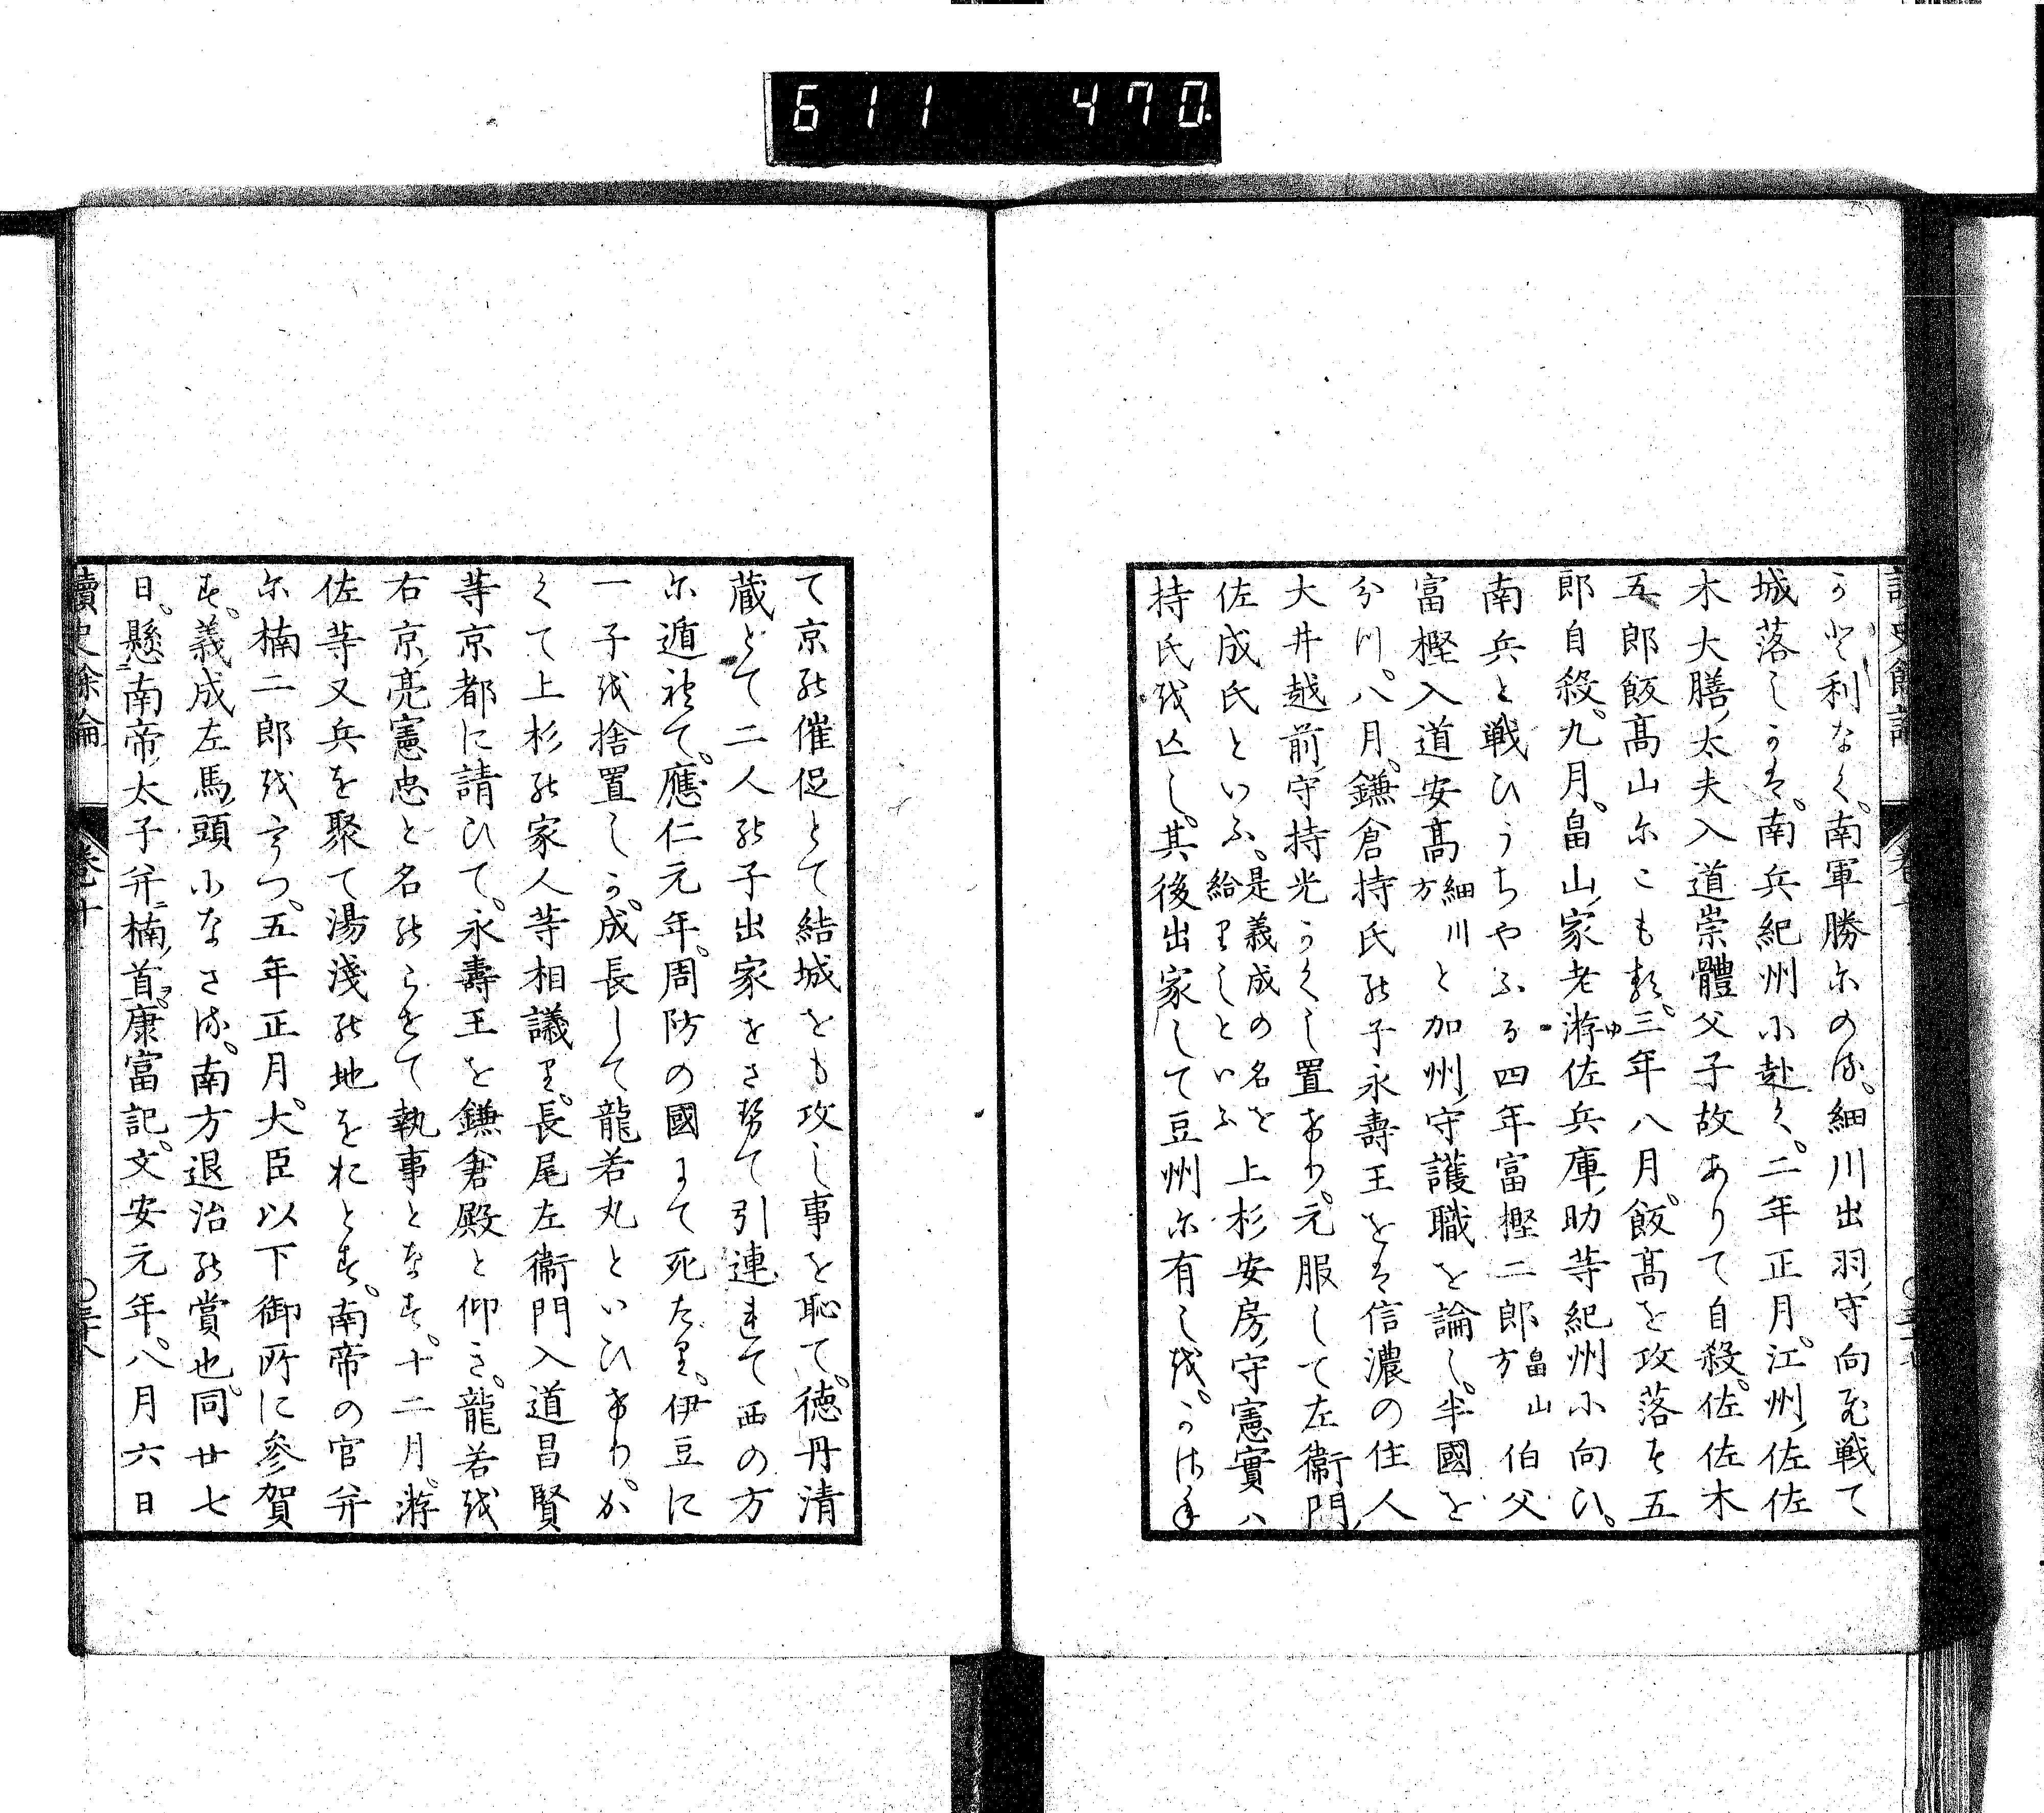 611 470.
かと利なく。南軍勝にのる。細川出羽守向ひ戦て
城落しかは。南兵紀州に赴く。二年正月。江州佐佐
木大膳太夫入道崇體父子故ありて自殺。佐佐木
五郎飯髙山にこもる。三年八月。飯髙を攻落す五
郎自殺。九月。畠山家老游佐兵庫助等紀州に向ひ。
南兵と戦ひうちやふる四年富樫二郎畠山方伯父
富樫入道安髙細川方と加州守護職を論し。半國を
分川。八月。鎌倉持氏の子永壽王をは信濃の住人
大井越前守持光かくし置あり。元服して左衞門
佐成氏といふ。是義成の名を給りしといふ上杉安房守憲實ハ
持氏を亾し。其後出家して豆州に有しを。かほ
て京の催促とて結城をも攻し事を恥て。徳丹清
蔵とて二人の子出家をさせて引連れて西の方
に遁れて。應仁元年。周防の國まて死たり。伊豆に
一子を捨置しか。成長して龍若丸といひあり。か
くて上杉の家人等相議り。長尾左衞門入道昌賢
等京都に請ひて。永壽王を鎌倉殿と仰き。龍若を
右京亮憲忠と名のらせて執事となす。十二月。游
佐等又兵を聚て湯淺の地をおとす。南帝の官并
に楠二郎をうつ。五年正月。大臣以下御所に參賀
す。義成左馬頭になさる。南方退治の賞也。同廿七
日。懸南帝太子并楠首。康富記。文安元年。八月六日
讀史餘論 卷十